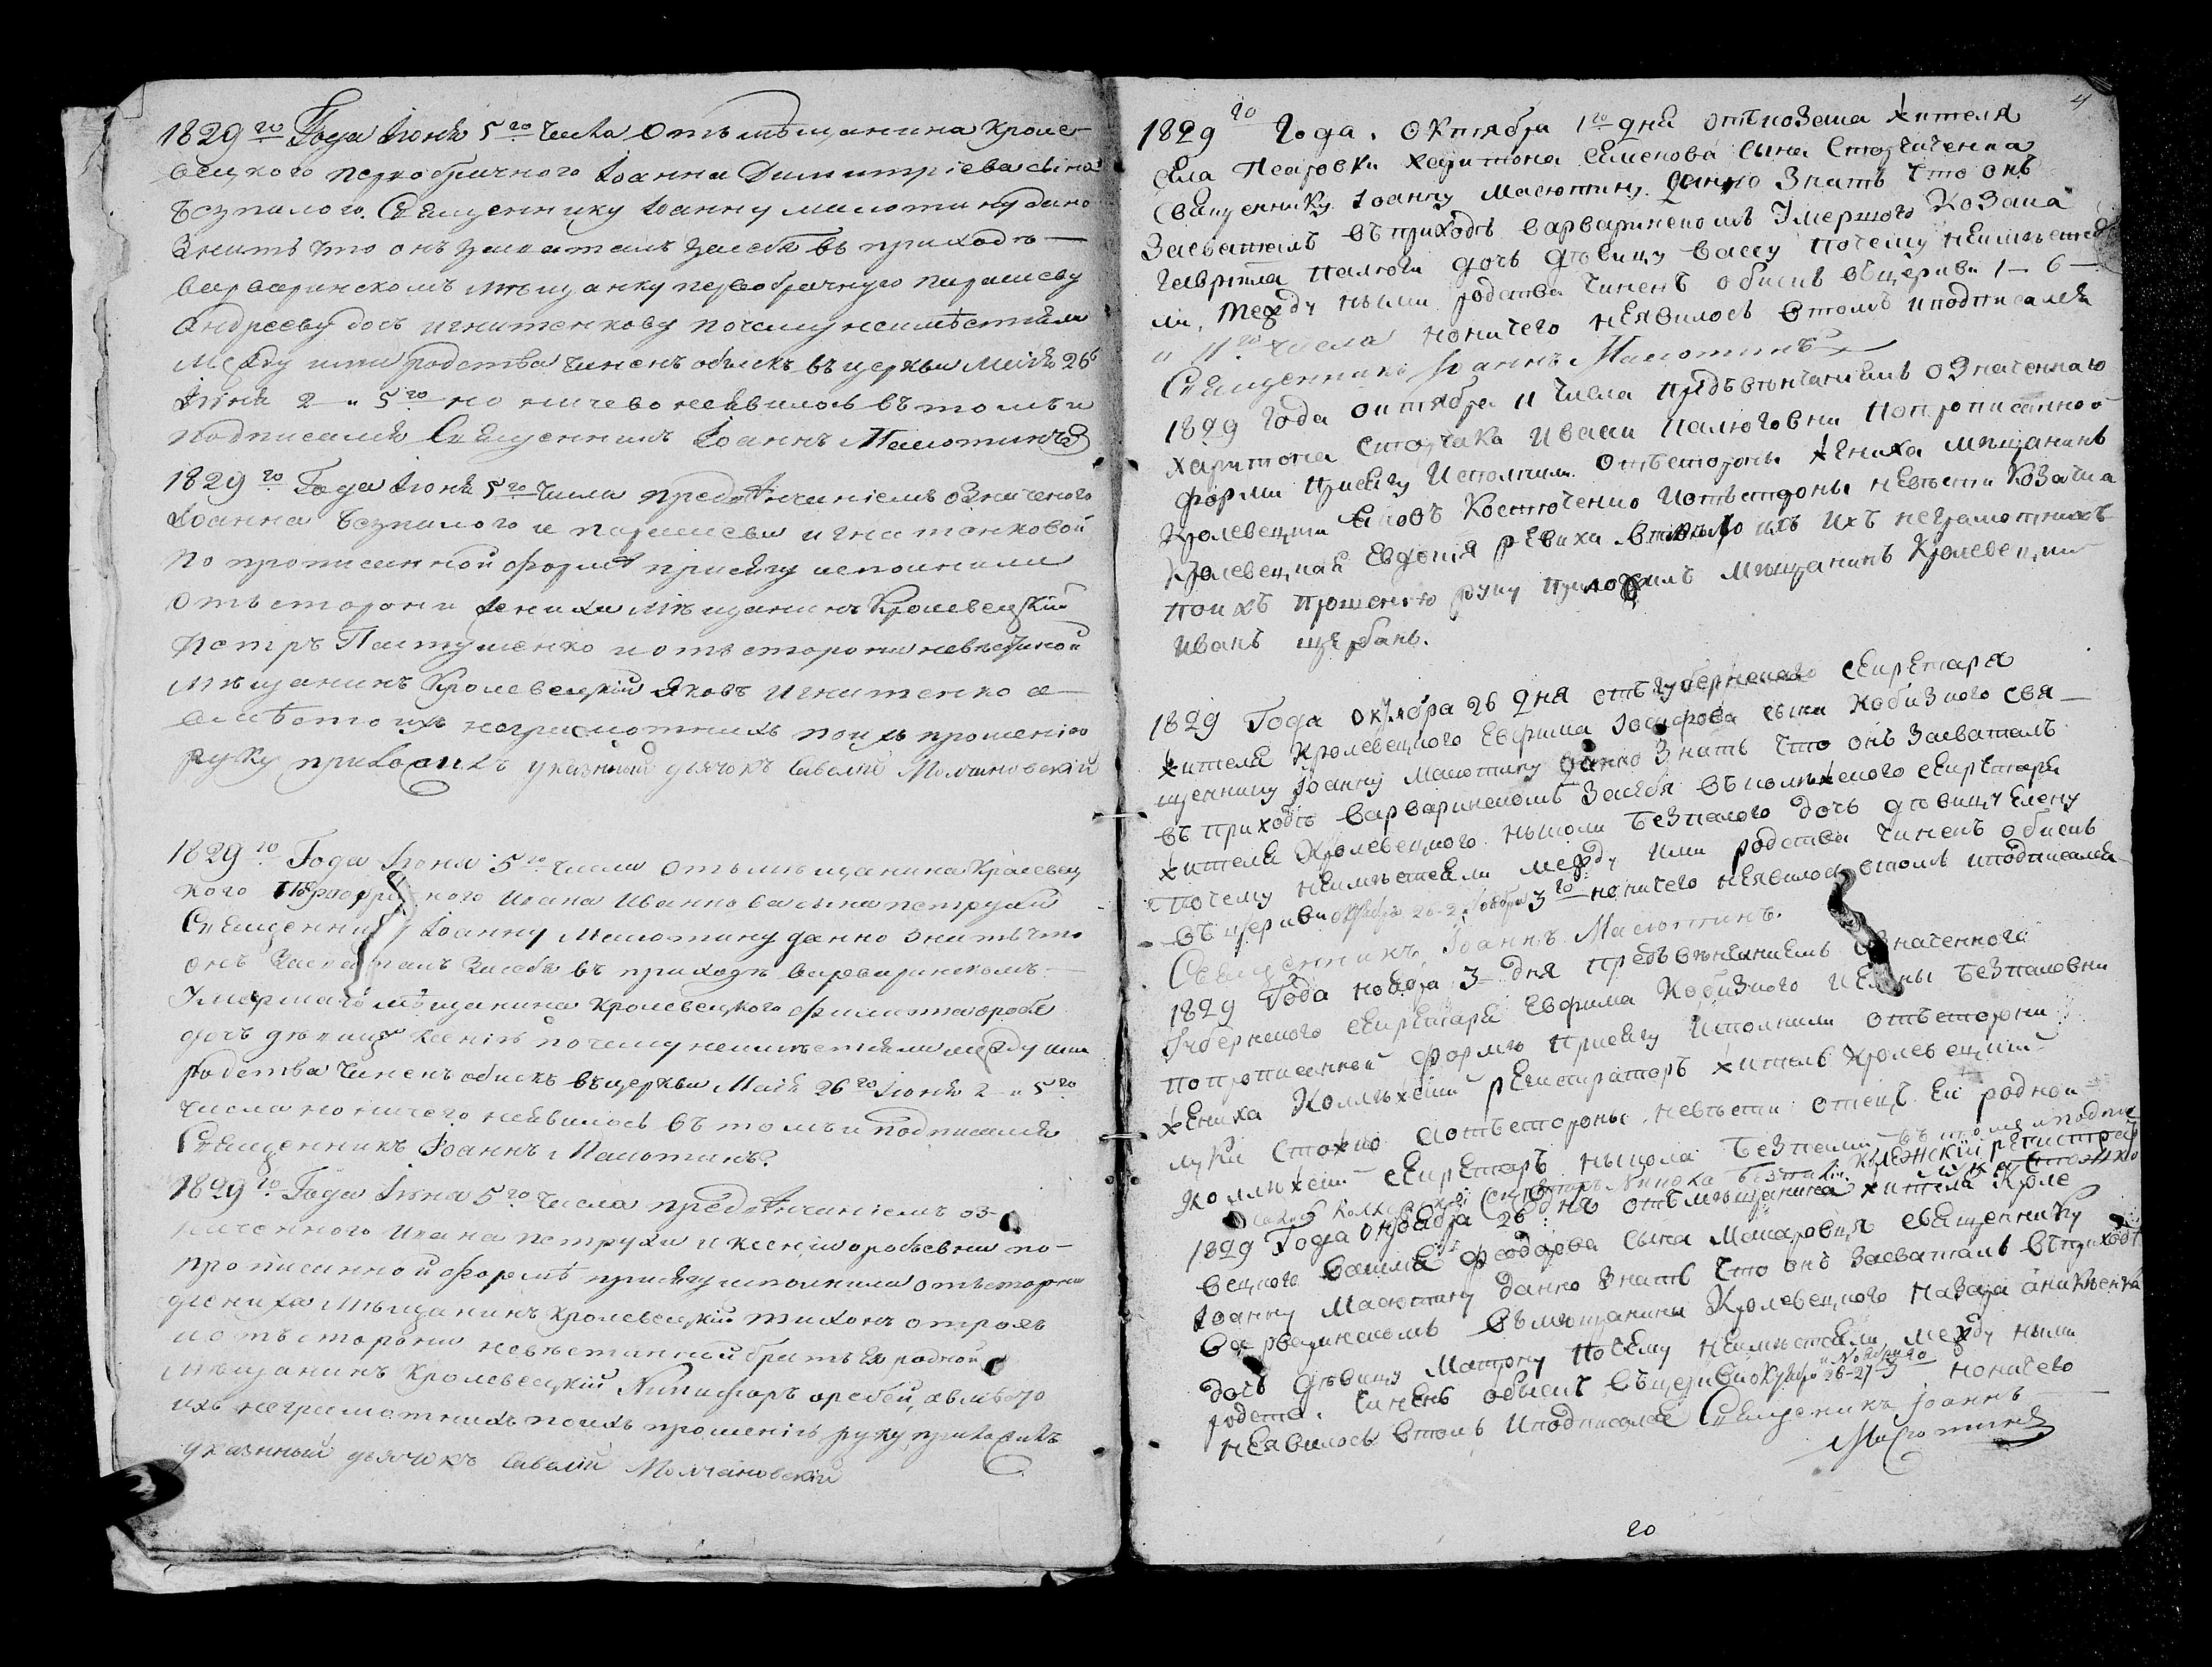 1829го Года Іюня 5го числа отъ мѣщанина Кролевецкого первобрачного Іоанна Димитріева сына
Безпалого Священнику Іоанну Малютину дано
знать что онъ засваталъ засебя въ приходѣ
варваринскомъ мѣщанку первобрачную Параскеву
Андрееву дочь игнатенкову почему неимѣетсяли
между ими родства чиненъ обыскъ въ церкви Маія 26
Іюня 2 и 5го но ничево неявилось въ томъ и
подписался Священникъ Іоаннъ Малютинъ
1829го Года Іюня 5го числа предвѣнчаніемъ означеного
Іоанна Безпалого и параскевы игнатенковой
по прописанной формѣ присягу исполнили
отъ стороны жениха мѣщанинъ Кролевецкій
Петръ Пастушенко и отъ стороны невѣстиной
мѣщанинъ Кролевецкій Яковъ Игнатенко а
вмѣсто ихъ неграмотнихъ по ихъ прошенію
руку приложилъ указный дьячокъ Савелій Молчановскій
1829го Года Іюня 5го числа отъ мѣщанина Кролевец
кого первобрачного Ивана Иванова сына петрухи
Священнику Іоанну Малютину данно знать что
онъ засваталъ засебя въ приходѣ варваринскомъ
Умершаго мѣщанина Кролевецкого филипа оробья
дочь дѣвицу ксенію почему неимѣетсяли между ими
родства чиненъ обискъ въ церкви Маія 26го Іюня 2 и 5го
числа но ничего неявилось въ томъ и подписался
Священникъ Іоаннъ Малютинъ
1829го Года Іюня 5го числа предвѣнчаніемъ оз-
наченного Ивана петрухи и ксеніи оробьевни по-
прописанной формѣ присягу исполнили отъ стороны
жениха мѣщанинъ Кролевецкій тихонъ
и отъ стороны невѣстинной братъ Ея родной
мѣщанинъ Кролевецкій Никифоръ оробей, а вмѣсто
ихъ неграмотнихъ по ихъ прошенію руку приложилъ
указный дьячокъ Савелій Молчановскій
4
1829го Года. Октября 1го дня отъ козака жителя
села Харитона семенова сына
Священнику Іоанну Малютину данно знать что онъ
Засваталъ въ приходѣ варваринскомъ Умершого козака
Гаврила палюги дочь дѣвицу вассу почему неимѣется
ли, между ными родства чиненъ обискъ въ церкви 1 6
и 11го числа но ничего неявилось втомъ иподписался
Священникъ Іоаннъ Малютинъ
1829 Года октября 11 числа предъвѣнчаніемъ означеннаго
Харитона и васси палюговни попрописанной
формѣ присягу исполнили отъстороны жениха мѣщанинъ
Кролевецкій Яковъ Костюченко иотъстороны невѣсти козачка
Кролевецкая Евдокія ревиха вмѣсто ихъ неграмотнихъ
поихъ прошенію руку приложилъ мѣщанинъ Кролевецкій
иванъ щербань.
1829 Года октября 26 дня отъ губернского секретаря
жителя Кролевецкого Евфима Іосифова сына Кобизкого свя-
щеннику Іоанну Малютину данно знать что онъ засваталъ
въ приходѣ варваринскомъ засебя въ колѣжского секретаря
жителя Кролевецкого ныколи Безпалого дочь дѣвицу Елену
почему неимѣетсяли между ими родства чиненъ обискъ
въ церкви октября 26-2 Ноября 3го но ничего неявилось втомъ иподписался
Священникъ Іоаннъ Малютинъ.
1829 Года ноября 3 дня предъвѣнчаніемъ означенного
Губернского секретаря Евфима Кобизкого и Елены Безпаловни
попрописанной формѣ присягу исполнили отъстороны
жениха Коллѣжскій регистраторъ житель Кролевецкій
лука Стожко аотъстороны невѣсти отецъ Ей родной
коллѣжскій секретарь ныкола Безпалий въ томъ и подпи
регистрат
1829 Года октября 26 дня отъ мѣщанина жителя Кроле
вецкого василя феодорова сына Макаровца священнику
Іоанну Малютину данно знать что онъ засваталъ въ приходѣ
варваринскомъ въ мѣщанина Кролевецкого назара аникѣенка
дочь дѣвицу Матрону почему неимѣетсяли между ными
родств. чиненъ обыскъ въ церкви октября 26-27 и Ноября 3го ноничего
неявилось втомъ иподписался Священникъ Іоаннъ
Малютинъ
20